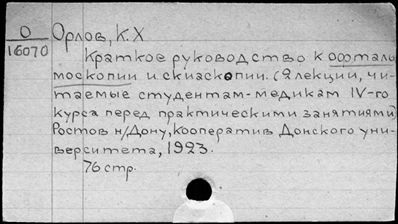 О
16070
Орлов, К.Х
Краткое руководство к офталь
москопии и скиаскопии. (Я лекции, чи-
таемые студентам-медикам IV-го
курса перед практическими занятиями)
Ростов н/Дону, кооператив Донского уни-
верситета, 1923.
76 стр.